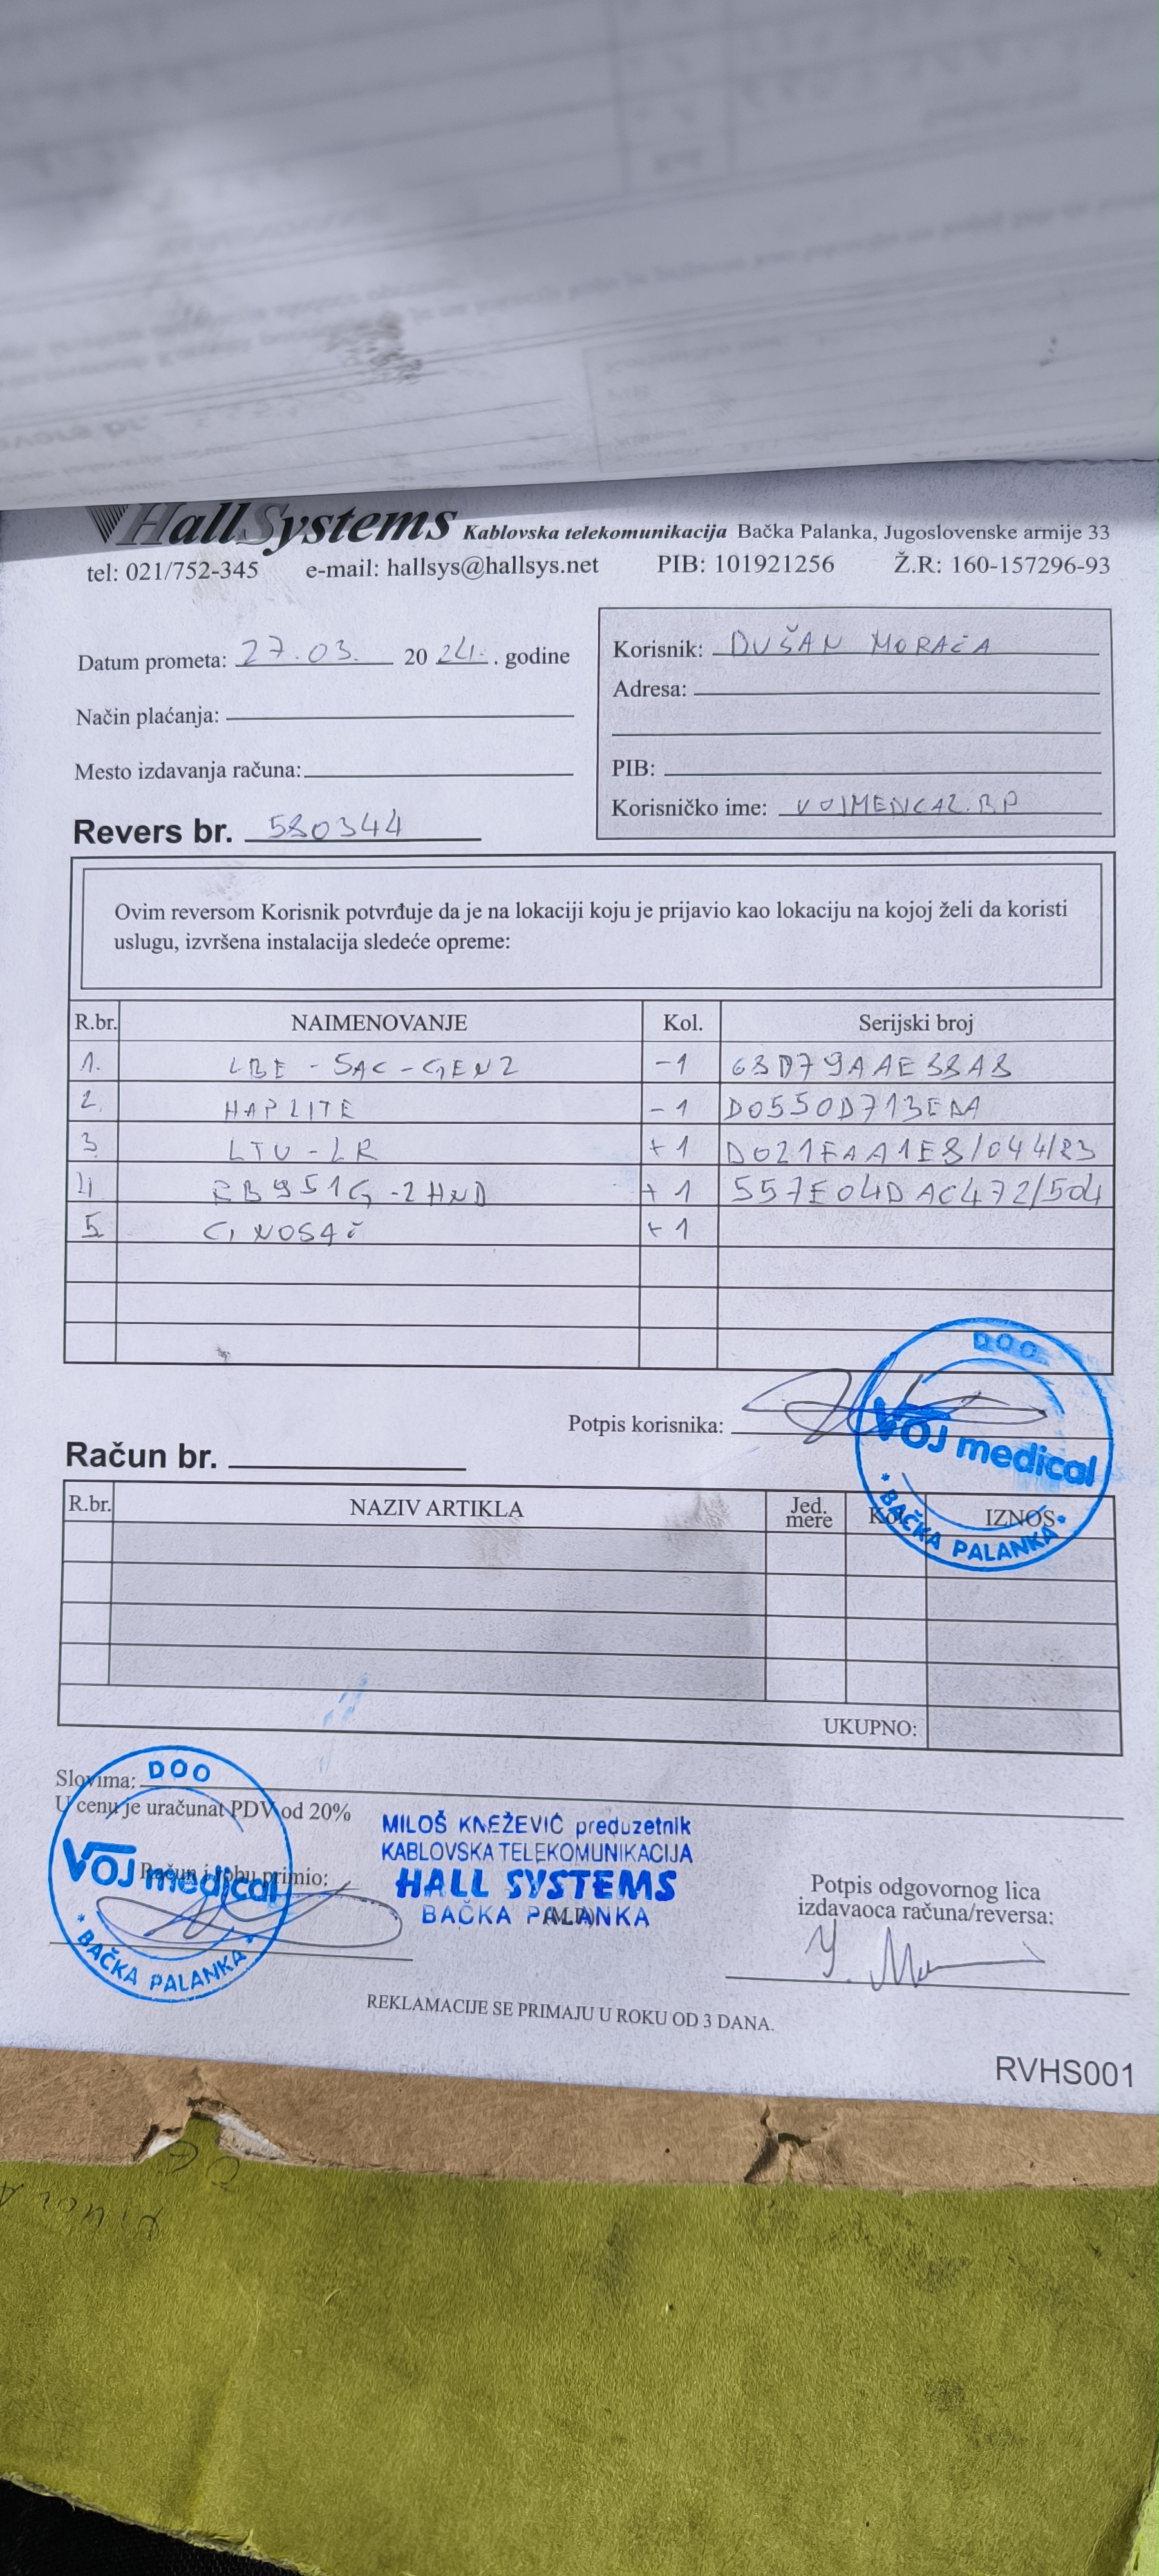 HallSystems Kablovska telekomunikacija Bačka Palanka, Jugoslovenske armije 33
tel: 021/752-345 e-mail: hallsys@hallsys.net PIB: 101921256 Ž.R: 160-157296-93
Datum prometa: 27.03. 2024. godine
Način plaćanja:
Mesto izdavanja računa:
Revers br. 580344
Korisnik: DUŠAN MORAČA
Adresa:
PIB:
Korisničko ime: VOJMEDICAL.BP
Ovim reversom Korisnik potvrđuje da je na lokaciji koju je prijavio kao lokaciju na kojoj želi da koristi
uslugu, izvršena instalacija sledeće opreme:
R.br. NAIMENOVANJE Kol. Serijski broj
1. LBE - 5AC - GEN2 -1 68D79AAE38A8
2. HAPLITE -1 D0550D713EDA
3 LTU - LR +1 D021FAA1E8/044/23
4 RB951G-2HND +1 557E04DAC472/504
5. G NOSAČ +1
Potpis korisnika:
DOO
VOJ medical
BAČKA PALANKA
Račun br.
R.br. NAZIV ARTIKLA Jed. mere Kol. IZNOS
UKUPNO:
Slovima:
U cenu je uračunat PDV od 20%
Račun i robu primio:
DOO
VOJ medical
BAČKA PALANKA
MILOŠ KNEŽEVIĆ preduzetnik
KABLOVSKA TELEKOMUNIKACIJA
HALL SYSTEMS
BAČKA PALANKA
(M.P.)
Potpis odgovornog lica
izdavaoca računa/reversa:
REKLAMACIJE SE PRIMAJU U ROKU OD 3 DANA.
RVHS001